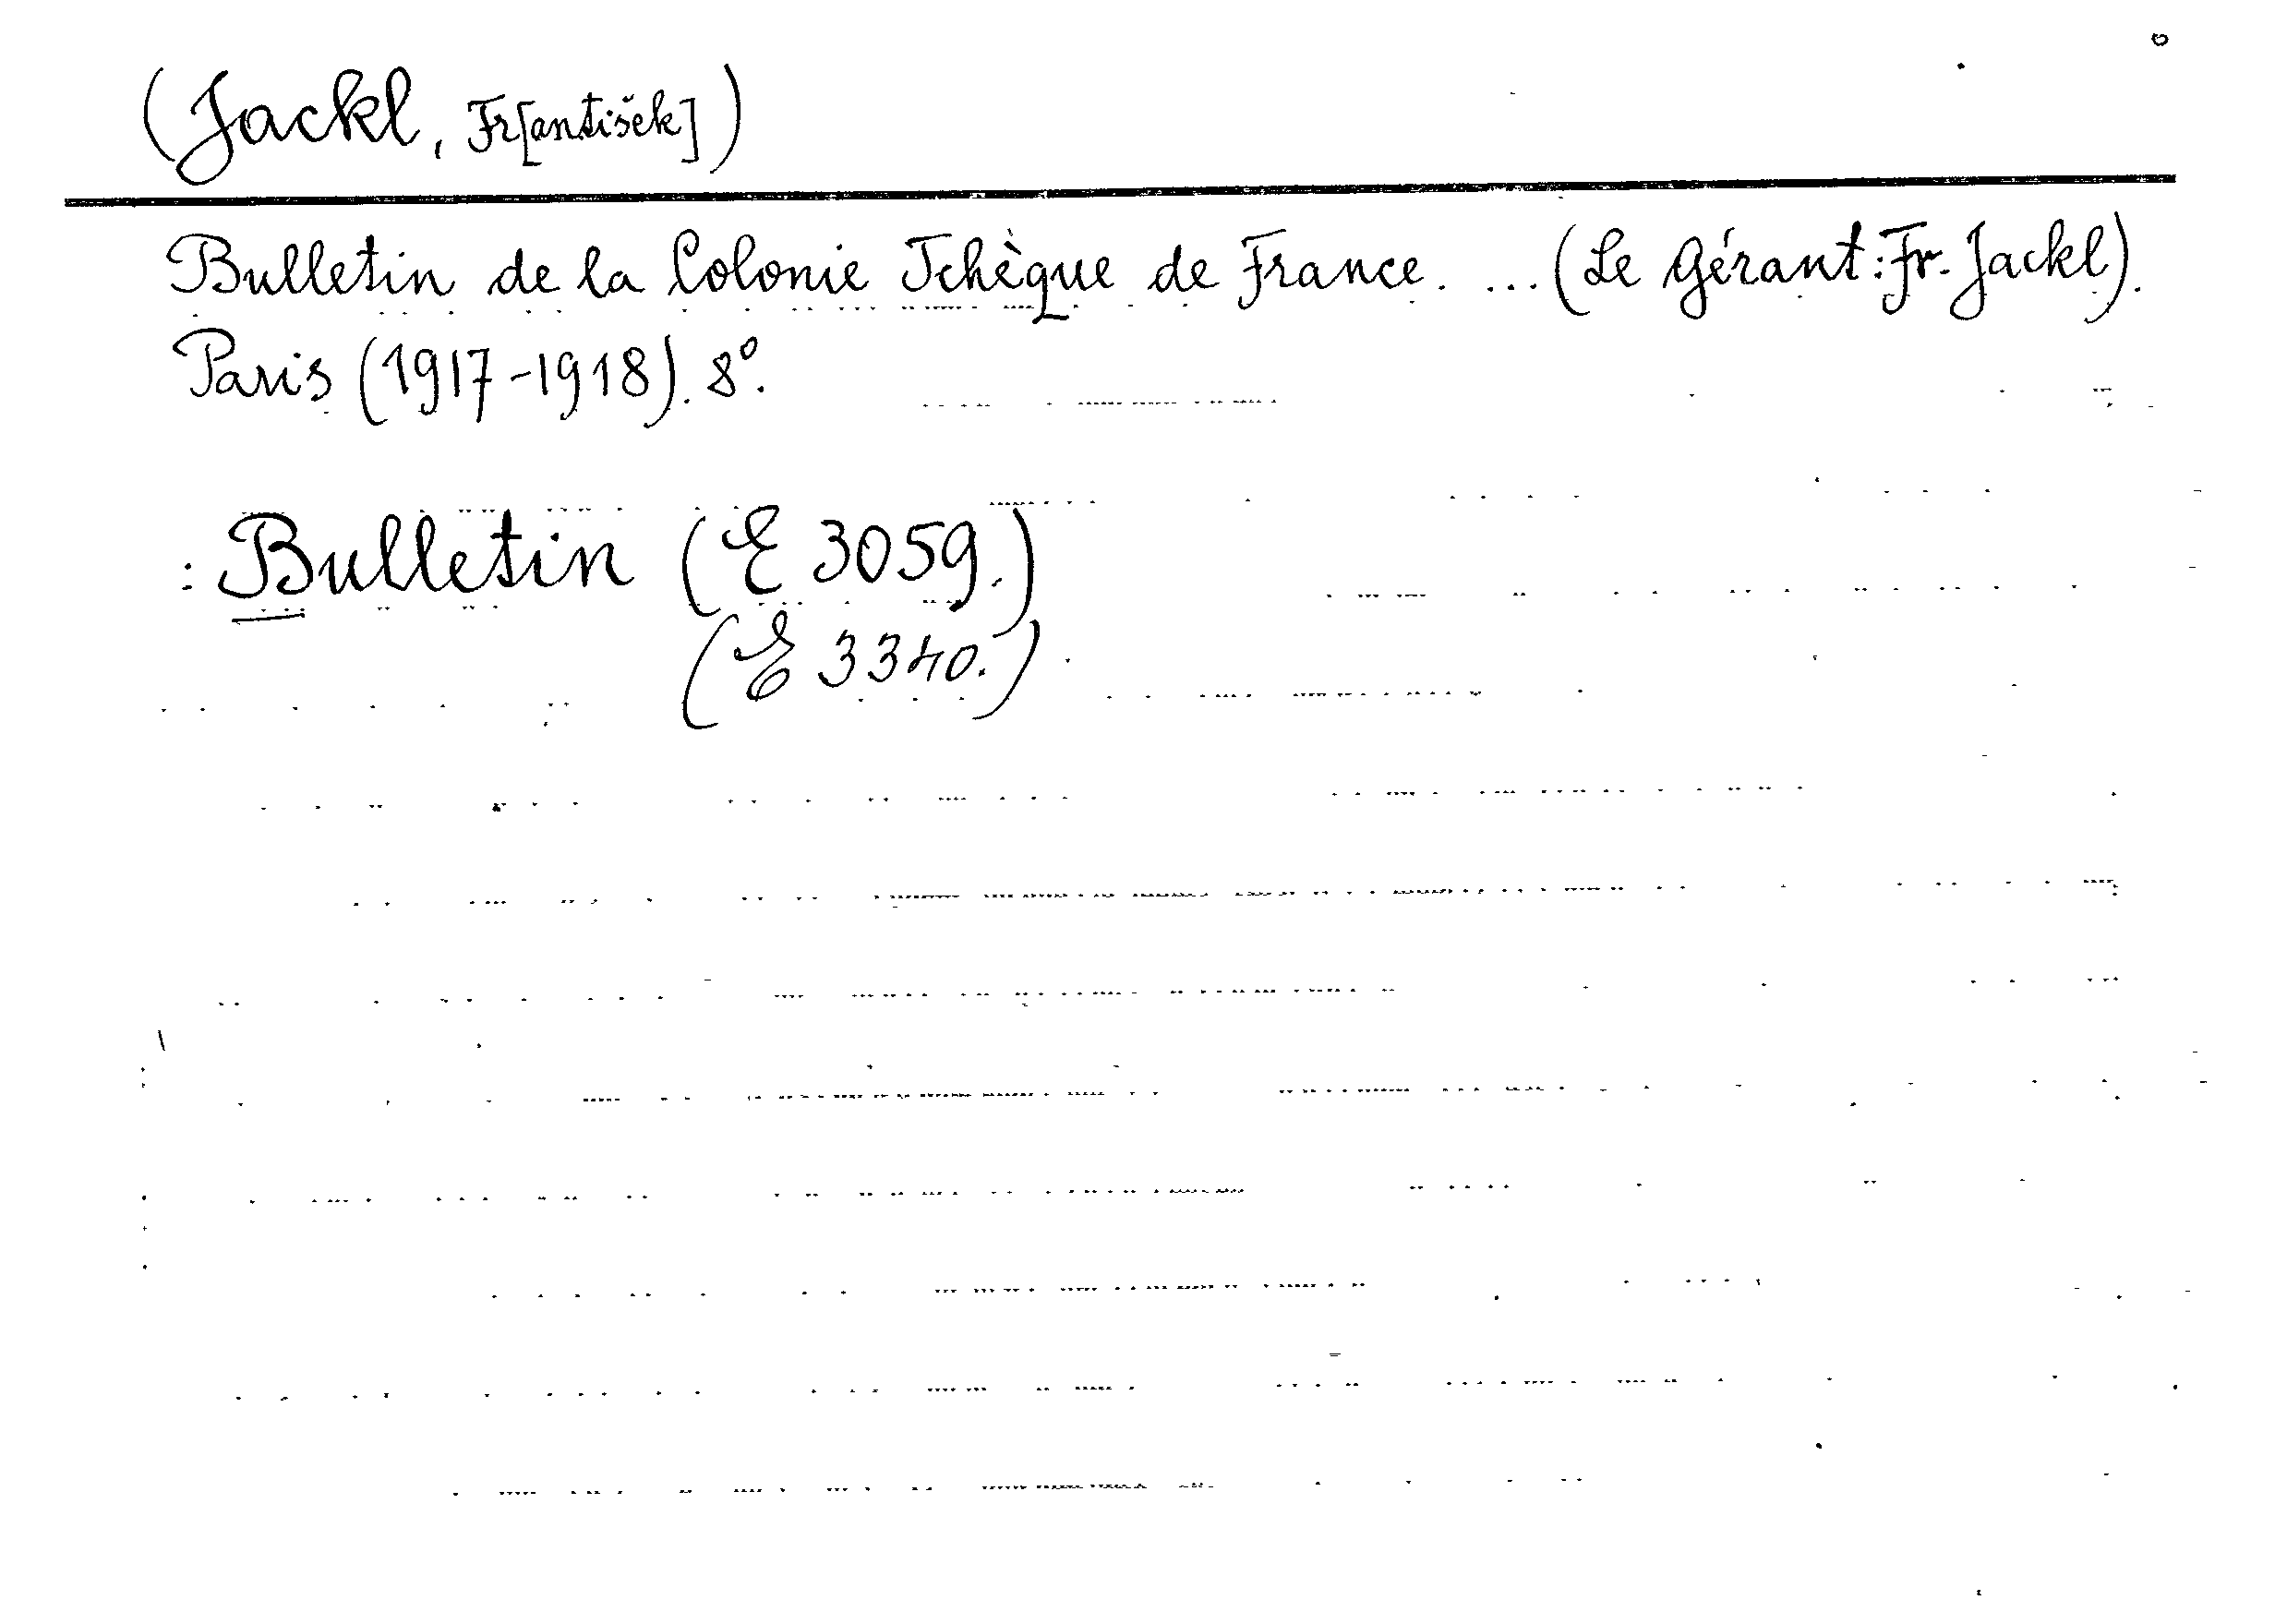 (Jackl, Fr[antišek])
Bulletin de la Colonie Tchèque de France. ... (Le Gérant: Fr. Jackl).
Paris (1917-1918). 8°.
: Bulletin (E 3059.)
(E 3340.)